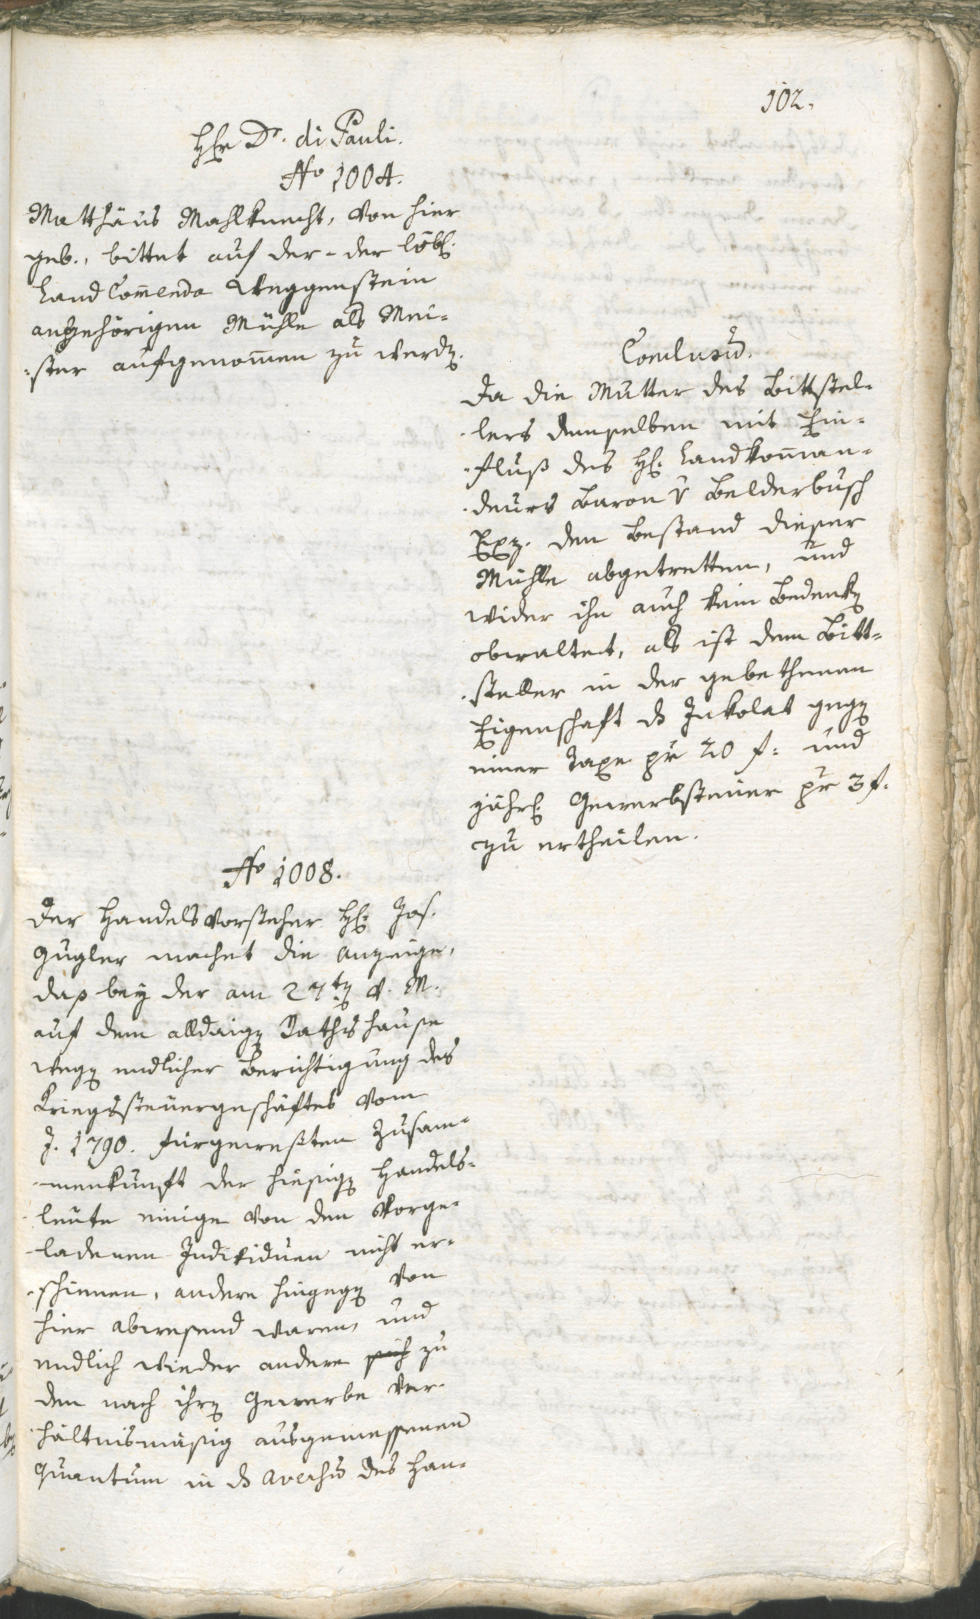 102.
Hr Dr. di Pauli.
No 1004.
Matthäus Mahlknecht, von hier
geb., bittet auf der - der löbl.
Land Com̅enda Weggenstein
angehörigen Mühle als Mei-
-ster aufgenom̅en zu werdz.
Conclusu̅.
Da die Mutter des Bittstel-
-lers demselben mit Ein-
-fluß des H. Landkom̅an-
-deurs Baron v Belderbusch
Exz. den Bestand dieser
Mühle abgetretten, und
wider ihn auch kein Bedenkn
obwaltet, als ist dem Bitt-
-steller in der gebethenen
Eigenschaft ds Inkolat gegn
einer Taxe pr 20 f: und
jährl. Gewerbsteuer pr 3 f.
zu ertheilen.
No 1008.
Der Handelsvorsteher H. Jos.
Gugler machet die Anzeige,
daß bey der am 27tn v. M.
auf dem alldaign Rathshause
wegn endlicher Berichtigung des
Kriegssteuergeschäftes vom
J. 1790. fürgeweßten Zusam-
-menkunft der hiesign Handels-
-leute einige von den Vorge-
-ladenen Individuen nicht er-
-schienen, andere hingegn von
hier abwesend waren, und
endlich wieder andere sich zu
den nach ihrn Gewerbe ver-
-hältnismäßig ausgemessenen
Quantum in ds Aversu̅ des Han-